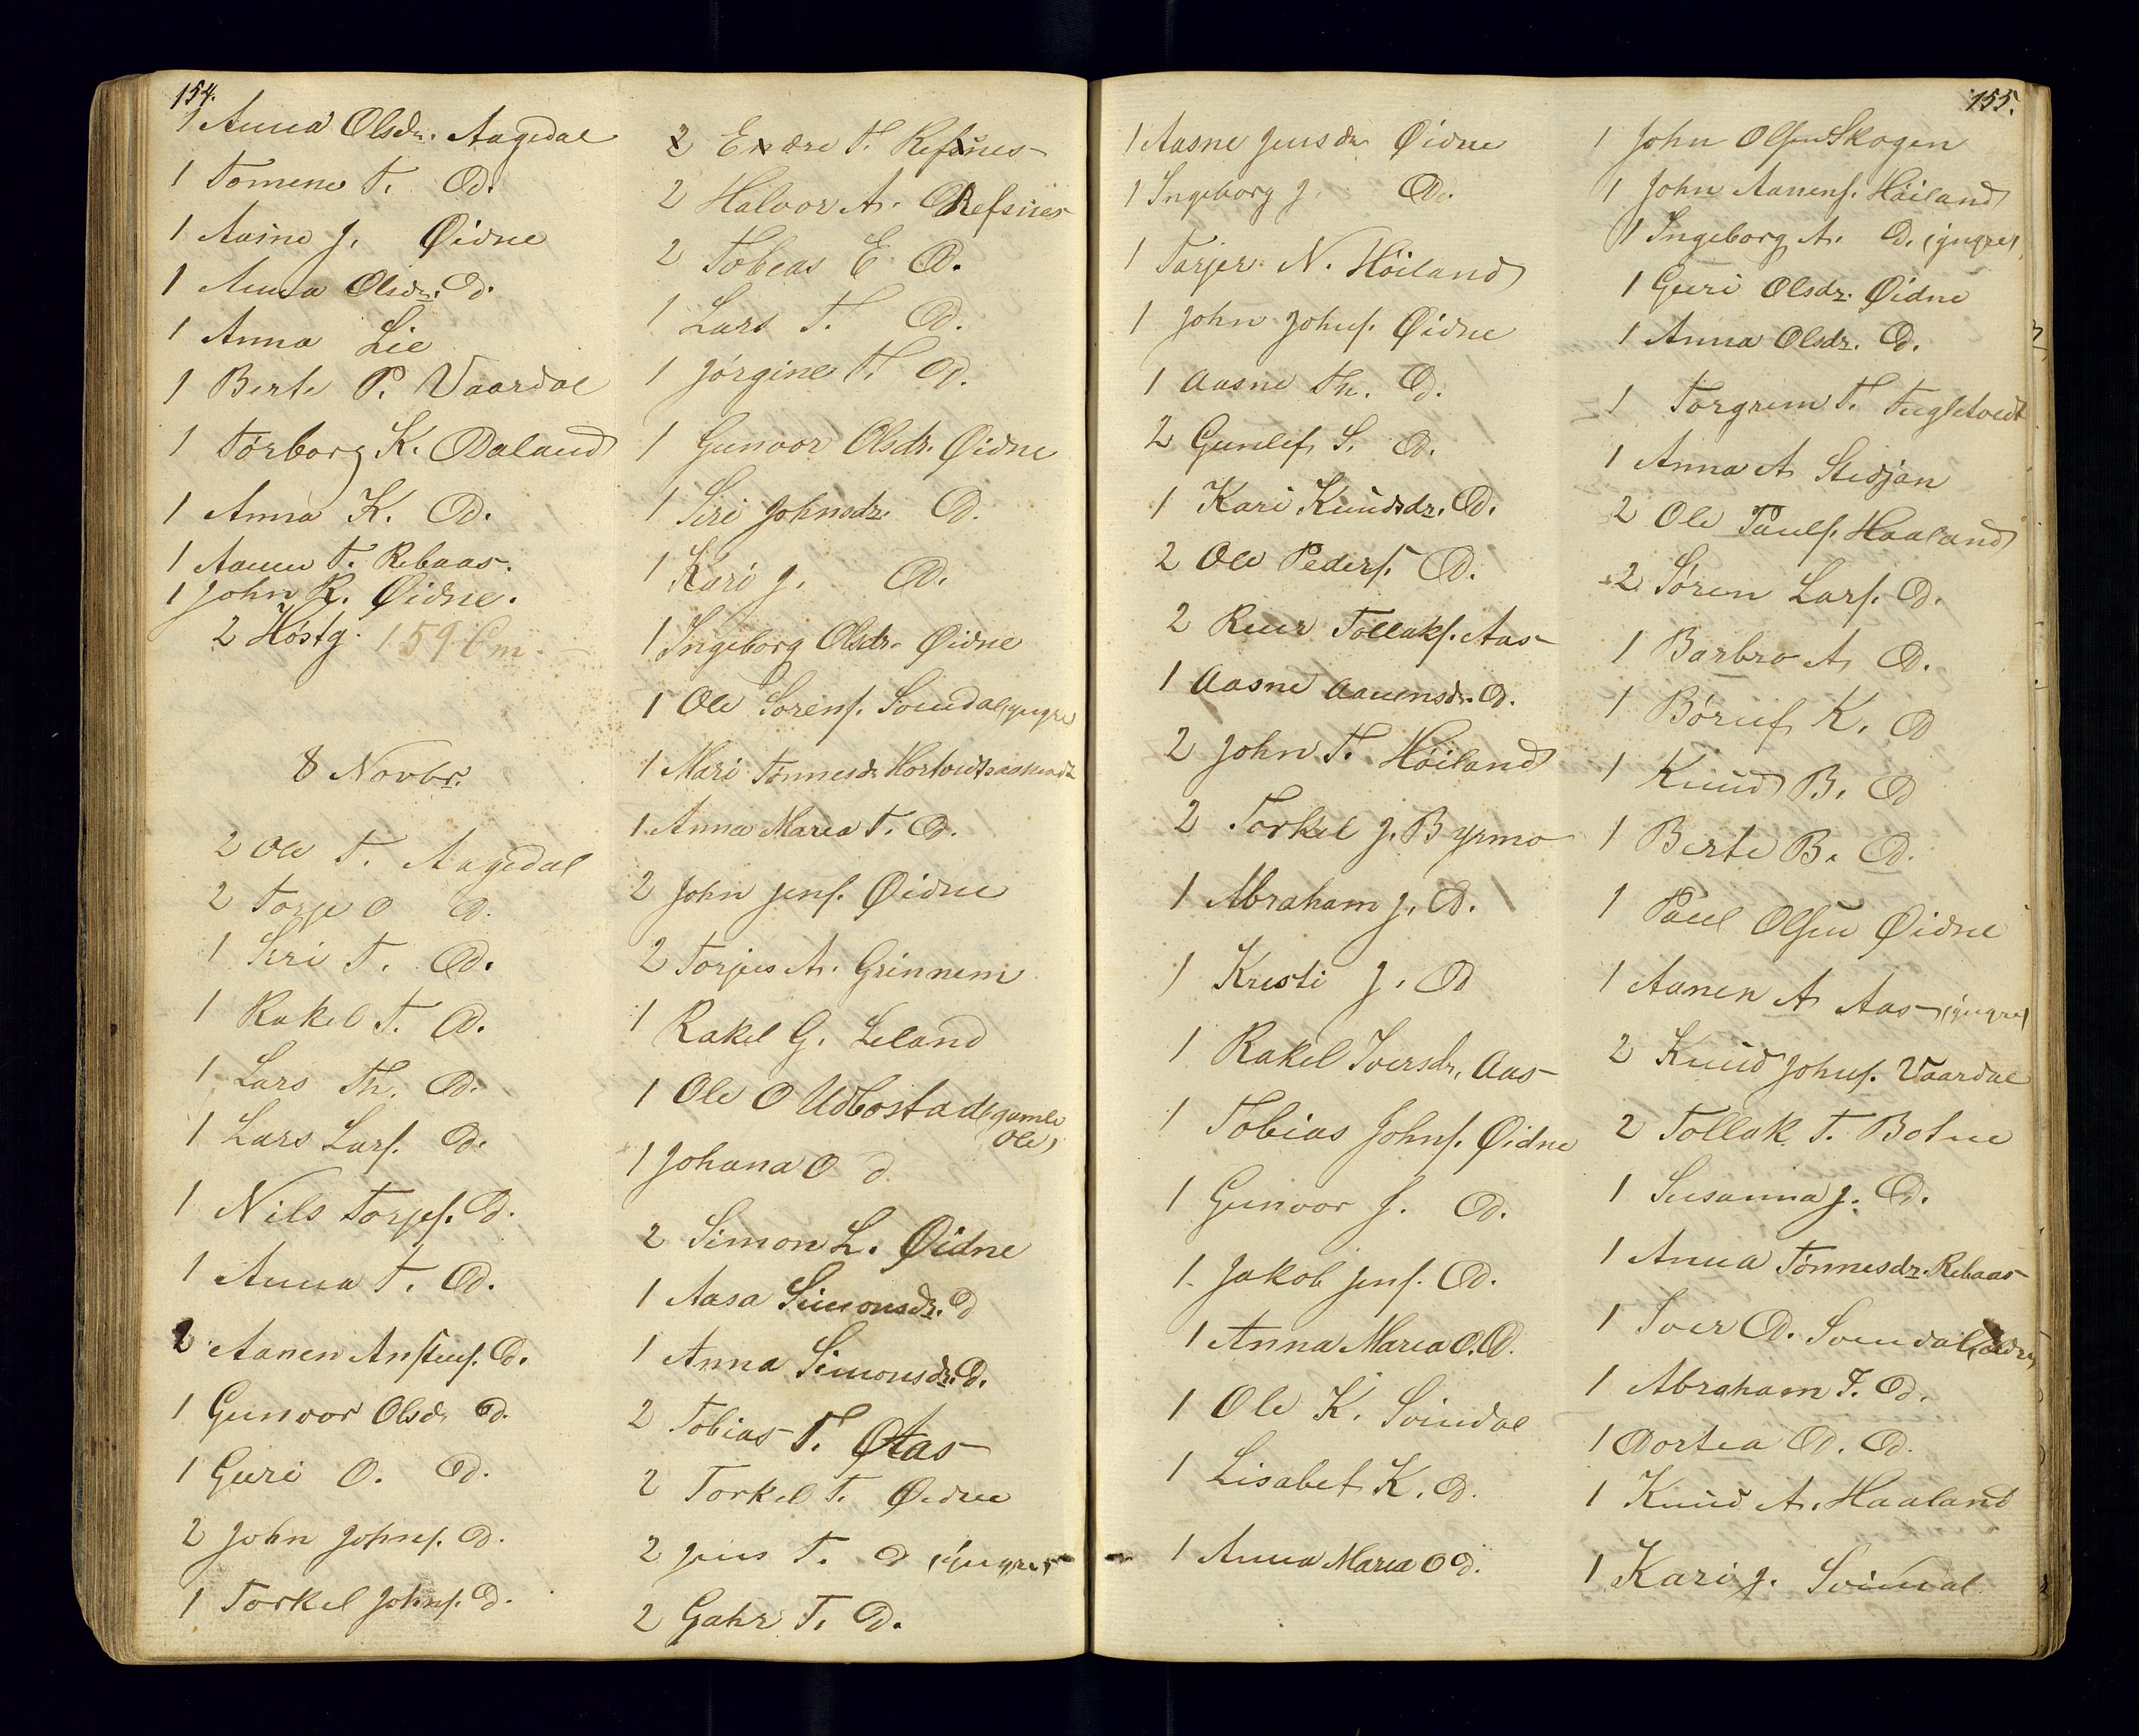 154.
1 Anna Olsdr. Aagedal
1 Tomene T. D.
1 Aasne J. Øidne
1 Anna Olsdr. D.
1 Anna Lie
1 Berte P. Vaardal
1 Tørborg K. Daland
1 Anna K. D.
1 Aanen T. Rebaas.
1 John R. Øidne.
2 Høstg. 159 Cm
8 Novbr.
2 Ole T. Aagedal
2 Torje O D.
1 Siri T. D.
1 Rakel T. D.
1 Lars Th. D.
1 Lars Lars. D.
1 Nils Torjes. D.
1 Anna T. D.
2 Aanen Anstens. D.
1 Gunvor Olsdr D.
1 Guri O. D.
2 John Johns. D.
1 Torkel Johns. D.
2 Endre T. Refsnes
2 Halvor A. Refsnes
2 Tobias E D.
1 Lars T. D.
1 Jørgine T. D.
1 Gunvor Olsdr. Øidne
1 Siri Johnsdr. D.
1 Kari J. D.
1 Ingeborg Olsdr. Øidne
1 Ole Sørens. Svindal (yngre)
1 Mari Tønnesdr
1 Anna Maria T. D.
2 John Jens. Øidne
2 Torjus A. Grinnem
1 Rakel G. Leland
1 Ole O Udbostad (gamle
Ole)
1 Johana O d
2 Simon L. Øidne
1 Aasa Simonsdr. D
1 Anna Simonsdr. D.
2 Tobias T. Aas
2 Torkel T. Øidne
2 Jens T. D (yngre)
2 Gahr T. D.
155.
1 Aasne Jensdr Øidne
1 Ingeborg J. D.
1 Tarjer N. Høiland
1 John Johns. Øidne
1 Aasne Th. D.
2 Gunlef S. D.
1 Kari Knudsdr. D.
2 Ole Peders. D.
2 Tollaks. Aas
1 Aasne Aanensdr. D.
2 John T. Høiland
2 Torkel J. Byrmo
1 Abraham J. D.
1 Kristi J. D
1 Rakel Iversdr. Aas
1 Tobias Johns. Øidne
1 Gunvor J. D.
1. Jakob Jens. D.
1 Anna Maria O. D.
1 Ole K. Svindal
1 Lisabet K. D.
1 Anna Maria O D.
1 John Olsen Skogen
1 John Aanens. Høiland
1 Ingeborg A. D. (yngre)
1 Guri Olsdr. Øidne
1 Anna Olsdr. D.
1 Torgrim T. Fugletvedt
1 Anna A Stedjan
2 Ole Pauls. Haaland
2 Søren Lars. D.
1 Barbro A D.
1 Børuf K. D
1 Knud B. D
1 Berte B. D.
1 Paul Olsen Øidne
1 Aanen A Aas (yngre)
2 Knud Johns. Vaardal
2 Tollak T. Botne
1 Susanna J. D.
1 Anna Tønnesdr. Rebaas
1 Iver D. Svindal (ældre)
1 Abraham I. D.
1 Dortea D. D.
1 Knud A. Haaland
1 Kari J. Svindal